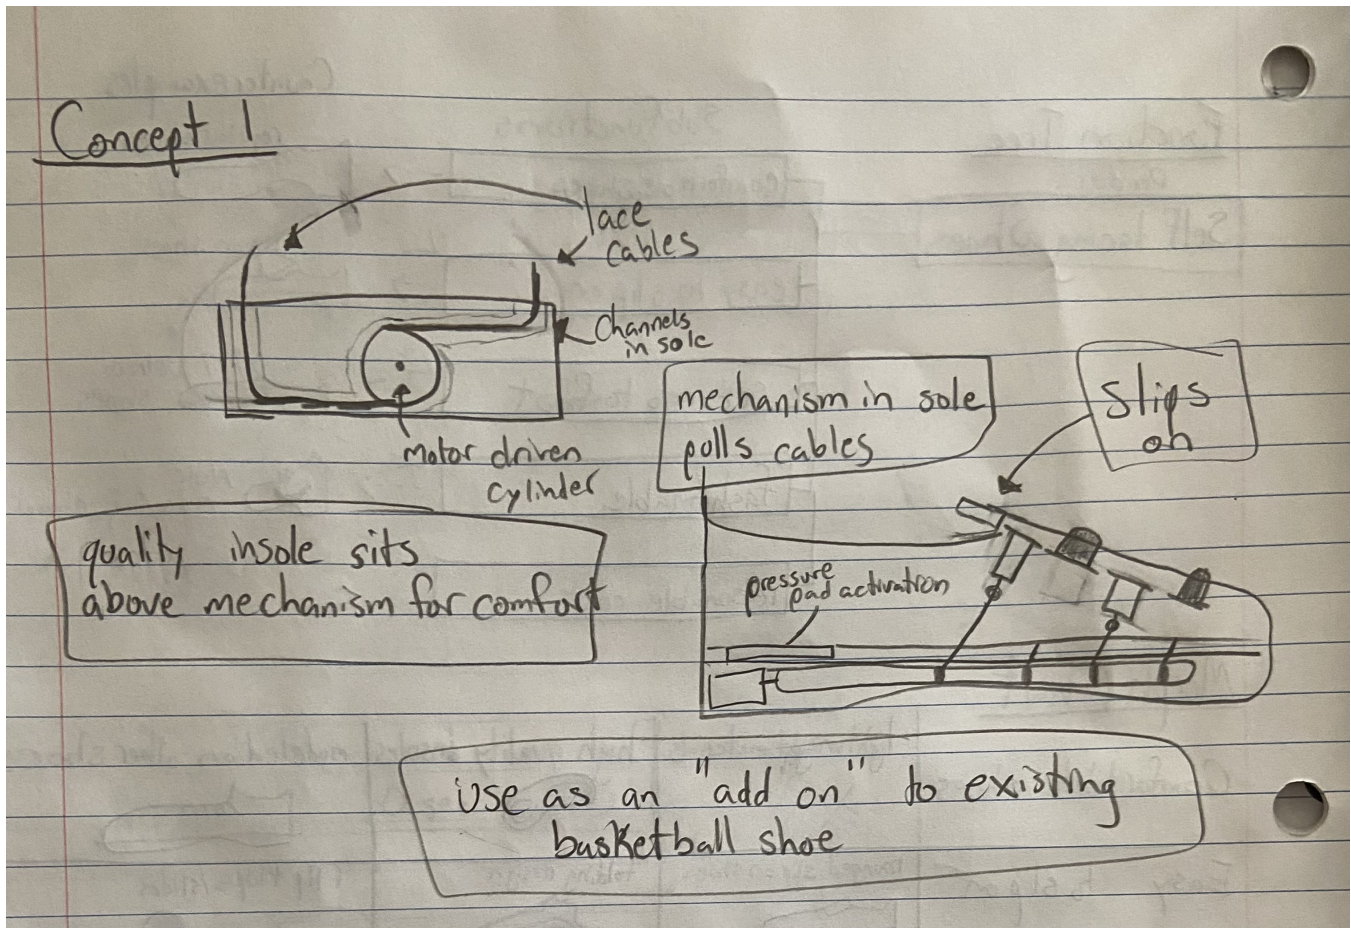 Concept 1
lace
cables
Channels
in sole
motor driven
cylinder
mechanism in sole
polls cables
Slips
on
quality insole sits
above mechanism for comfort
pressure
pad activation
use as an "add on" to existing
basketball shoe